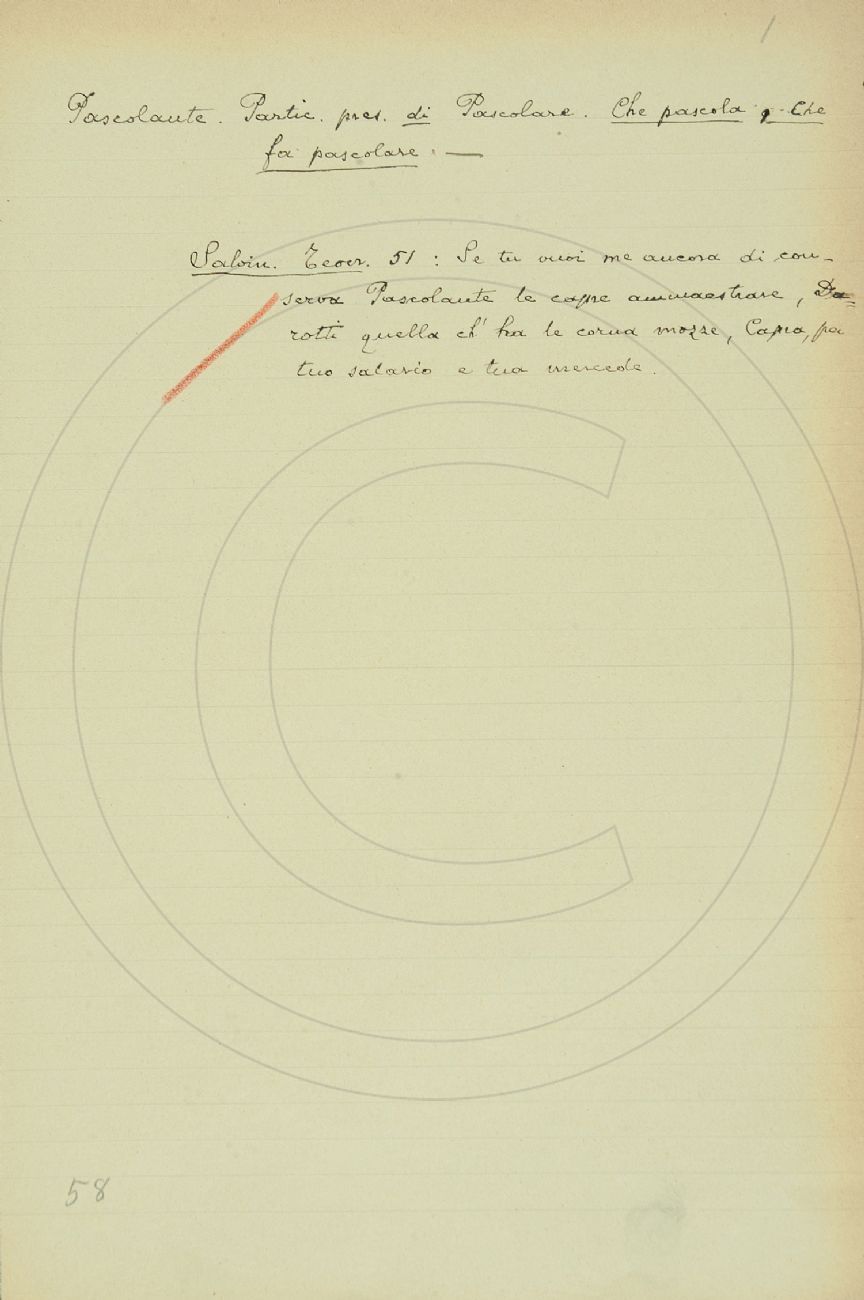 1
Pascolante. Partic. pres. di Pascolare. Che pascola, Che
fa pascolare. —
Salvin. Teocr. 51 : Se tu vuoi me ancora di con-
serva Pascolante le capre ammaestrare, Da=
rotti quella ch' ha le corna mozze, Capra, pa
tuo salario e tua mercede.
58